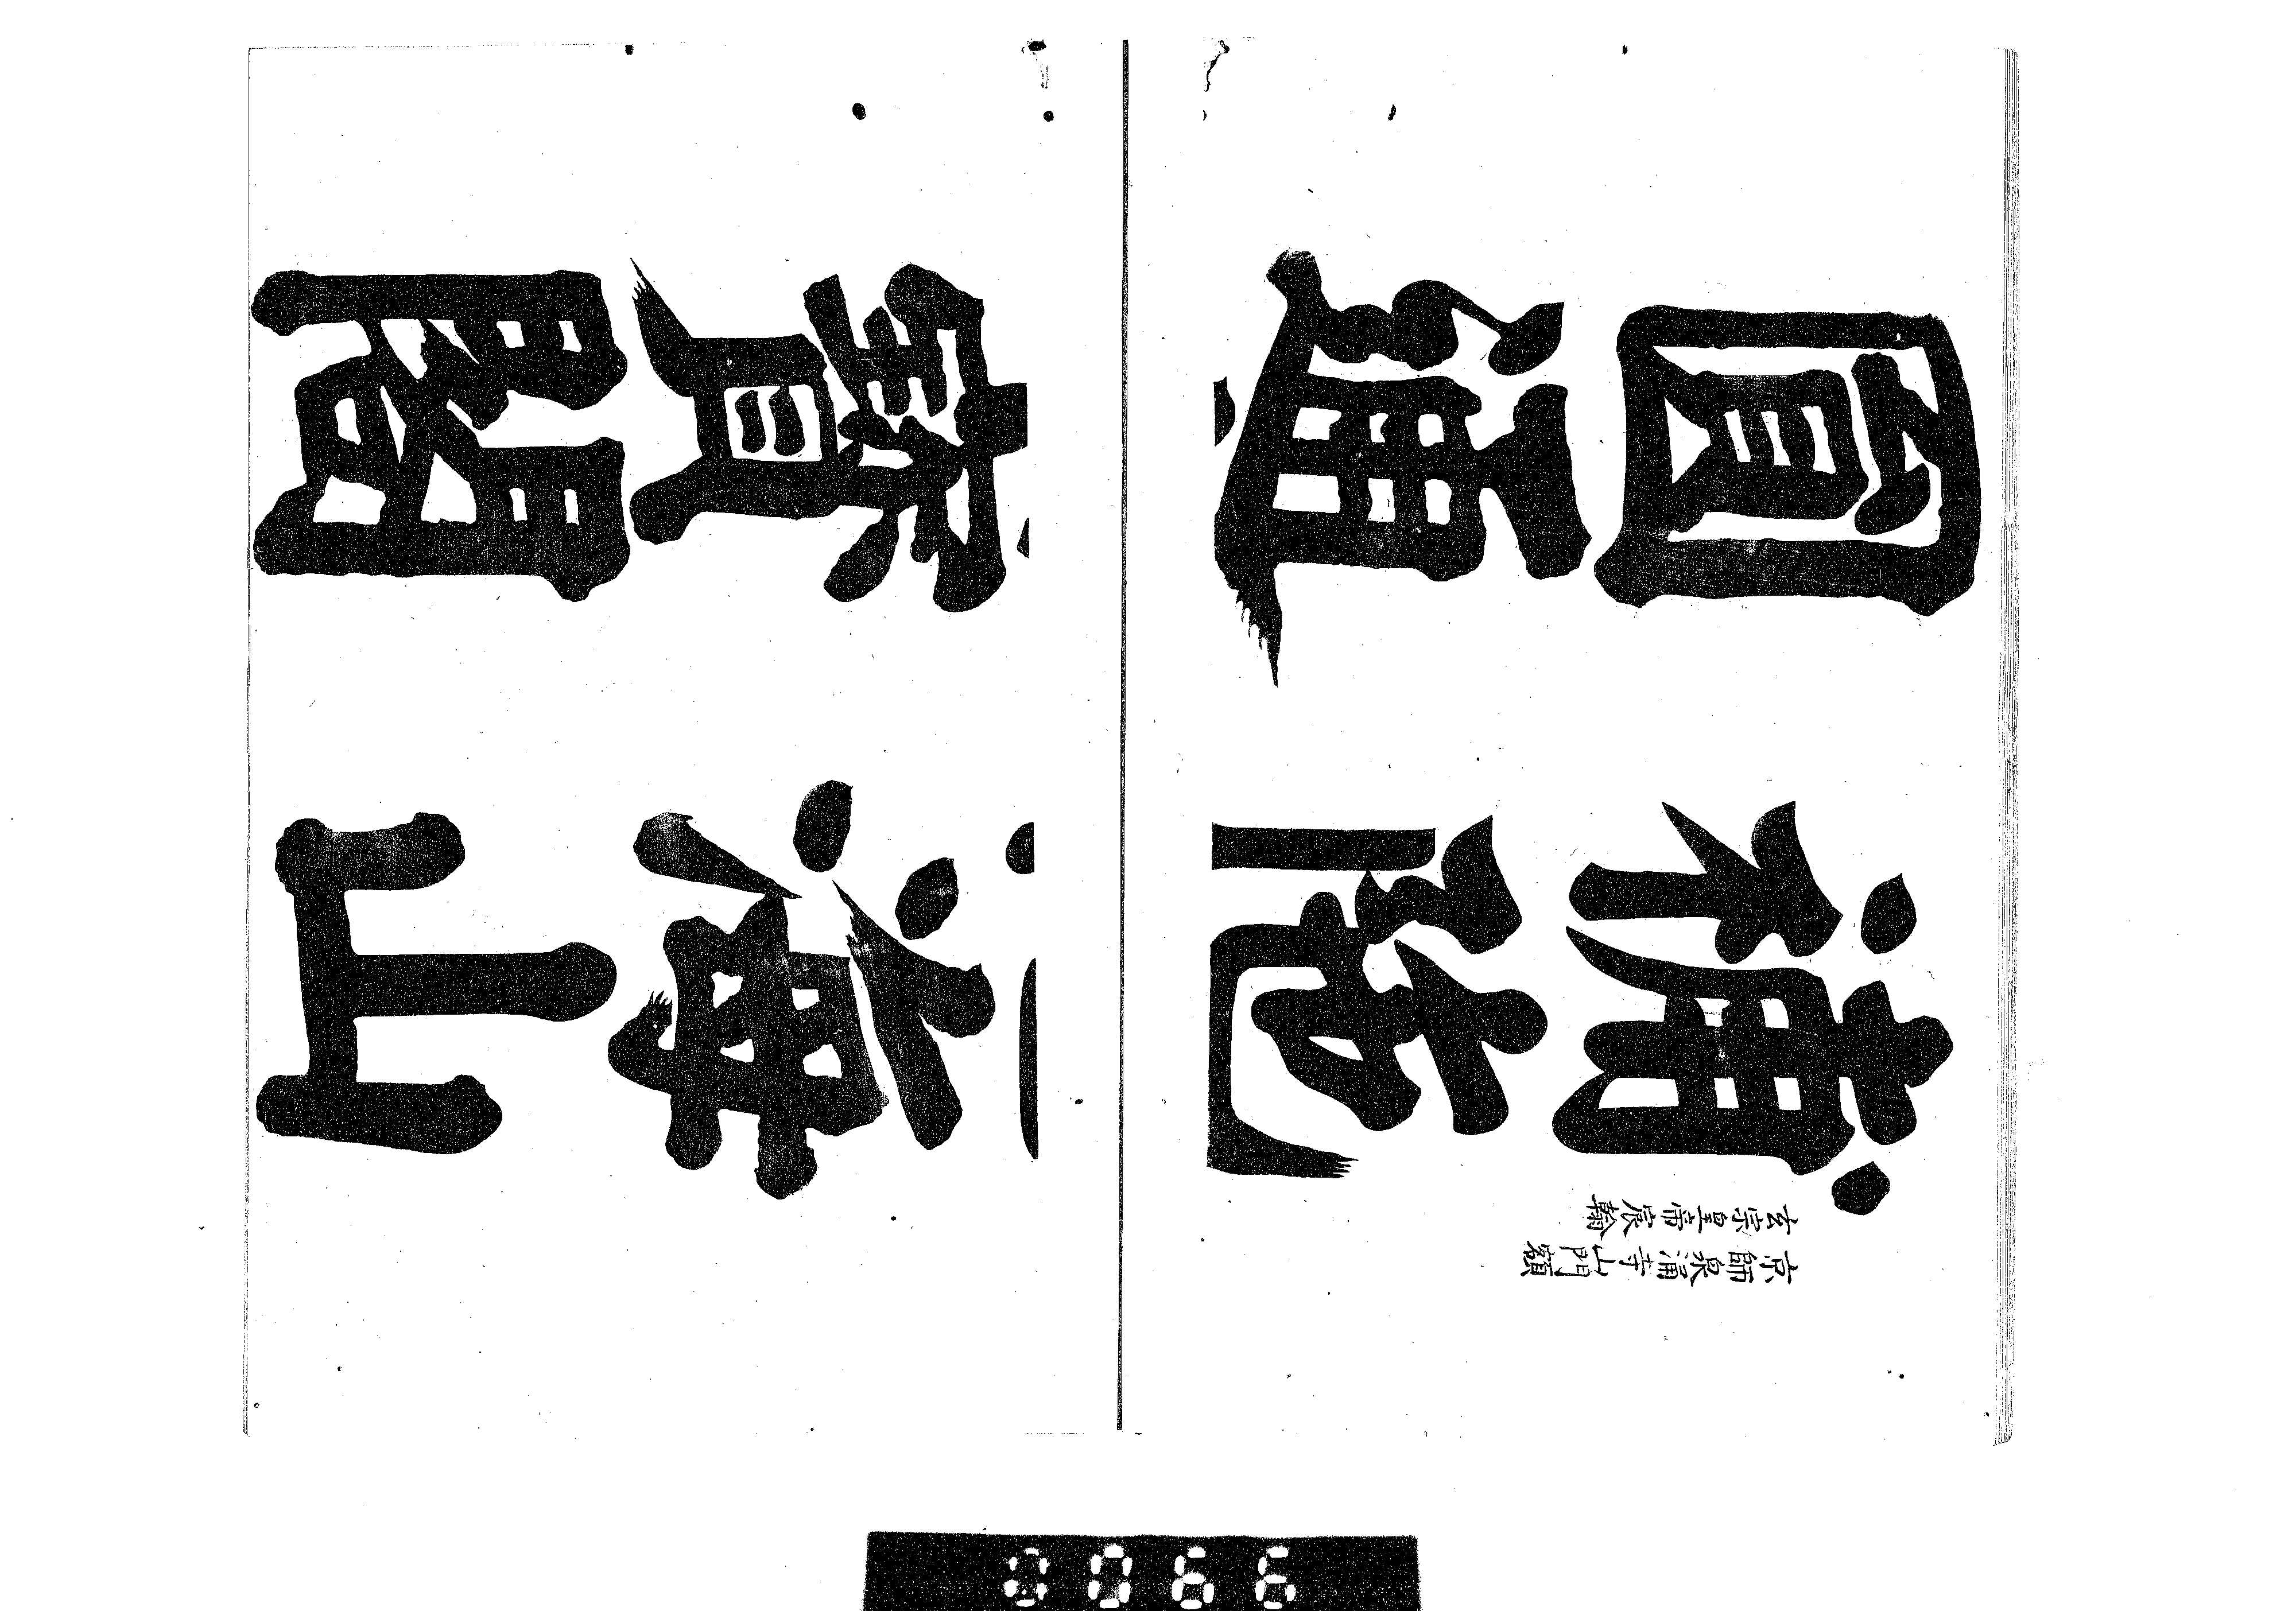 京師泉涌寺山門額
玄宗皇帝宸翰
補陀海山
圓通寶閣
0066